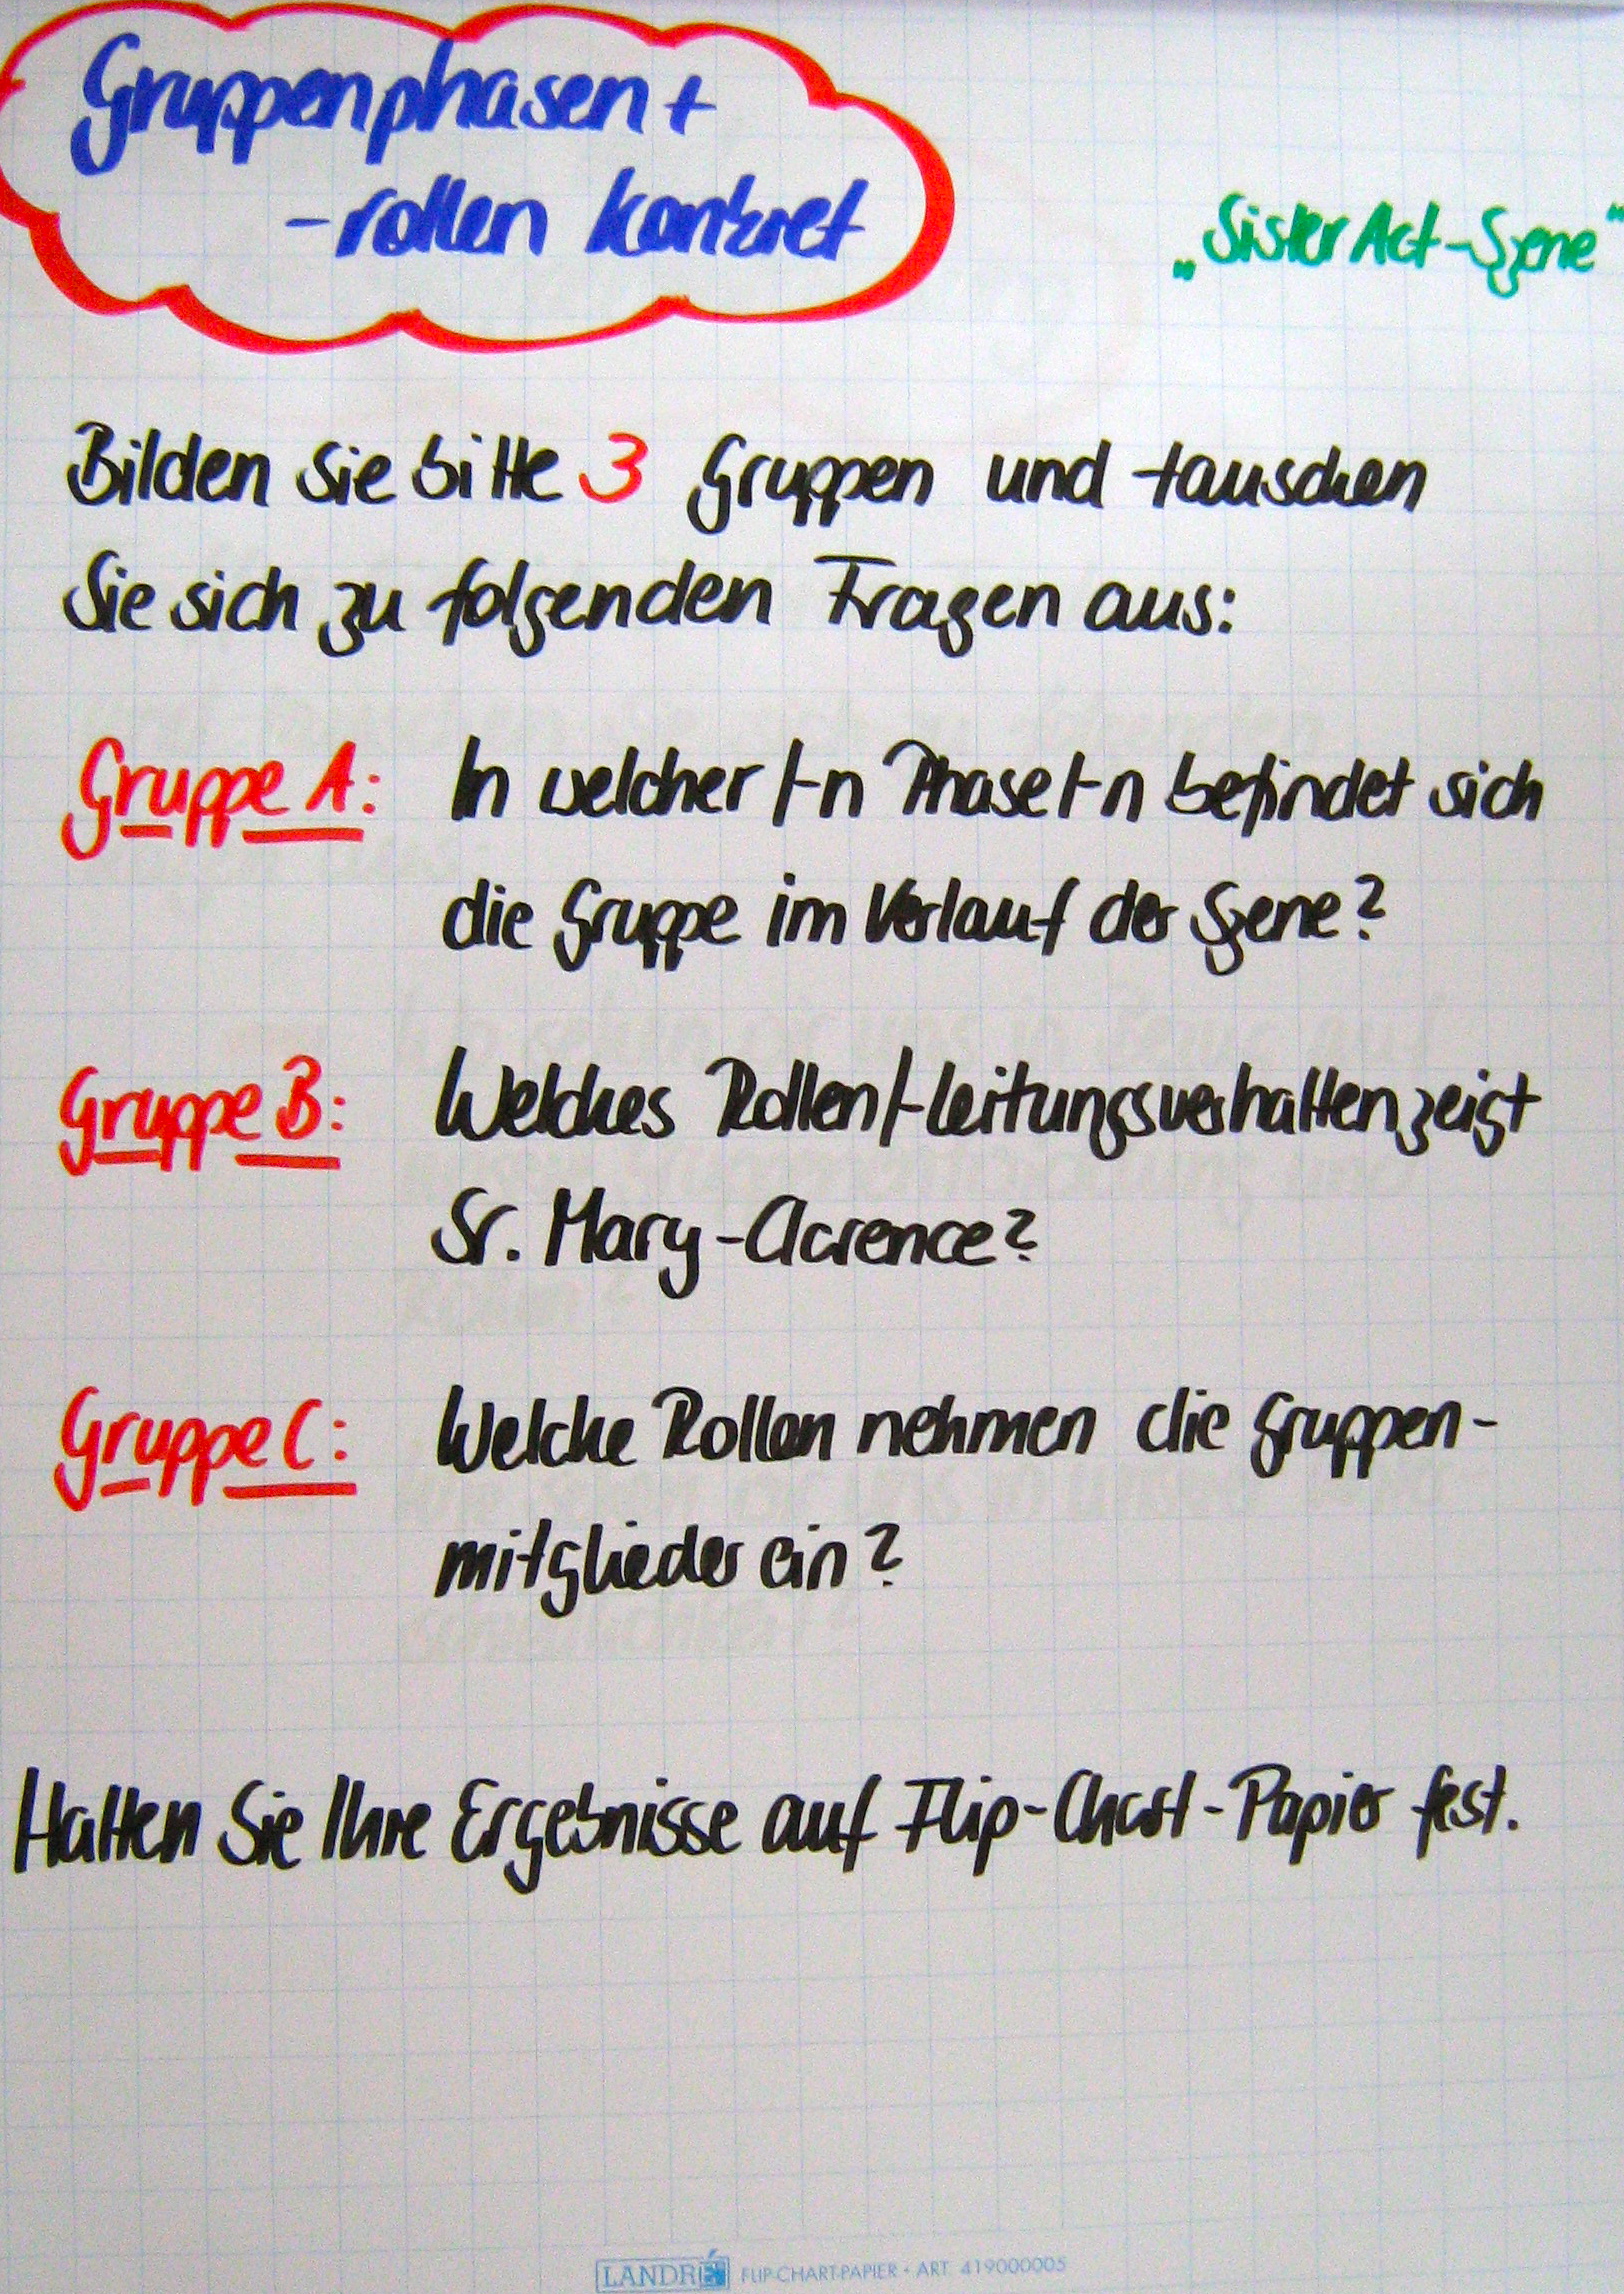 Gruppenphasen +
-rollen konkret
„Sister Act-Szene"
Bilden Sie bitte 3 Gruppen und tauschen
Sie sich zu folgenden Fragen aus:
Gruppe A: In welcher/-n Phase/-n befindet sich
die Gruppe im Verlauf der Szene?
Gruppe B: Welches Rollen/-leitungsverhalten zeigt
Sr. Mary-Clarence?
Gruppe C: Welche Rollen nehmen die Gruppen-
mitglieder ein?
Halten Sie Ihre Ergebnisse auf Flip-Chart-Papier fest.
LANDRÉ FLIP-CHART-PAPIER • ART. 419000005